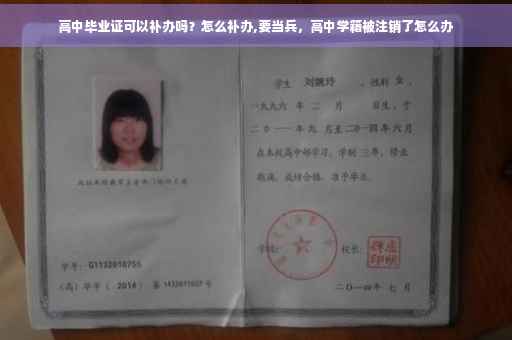 高中毕业证可以补办吗？怎么补办,要当兵，高中学籍被注销了怎么办
学生 刘婉玲 ，性别 女 ，
一九九六 年 二 月 日生，于
二〇一一年九 月至二〇一四年 六 月
在本校高中部学习，学制 三 年，修业
期满，成绩合格，准予毕业。
学校： 校长：
学号： G1132010755
（高）毕字（ 2014 ）第 1432011027 号
二〇一四年 七 月